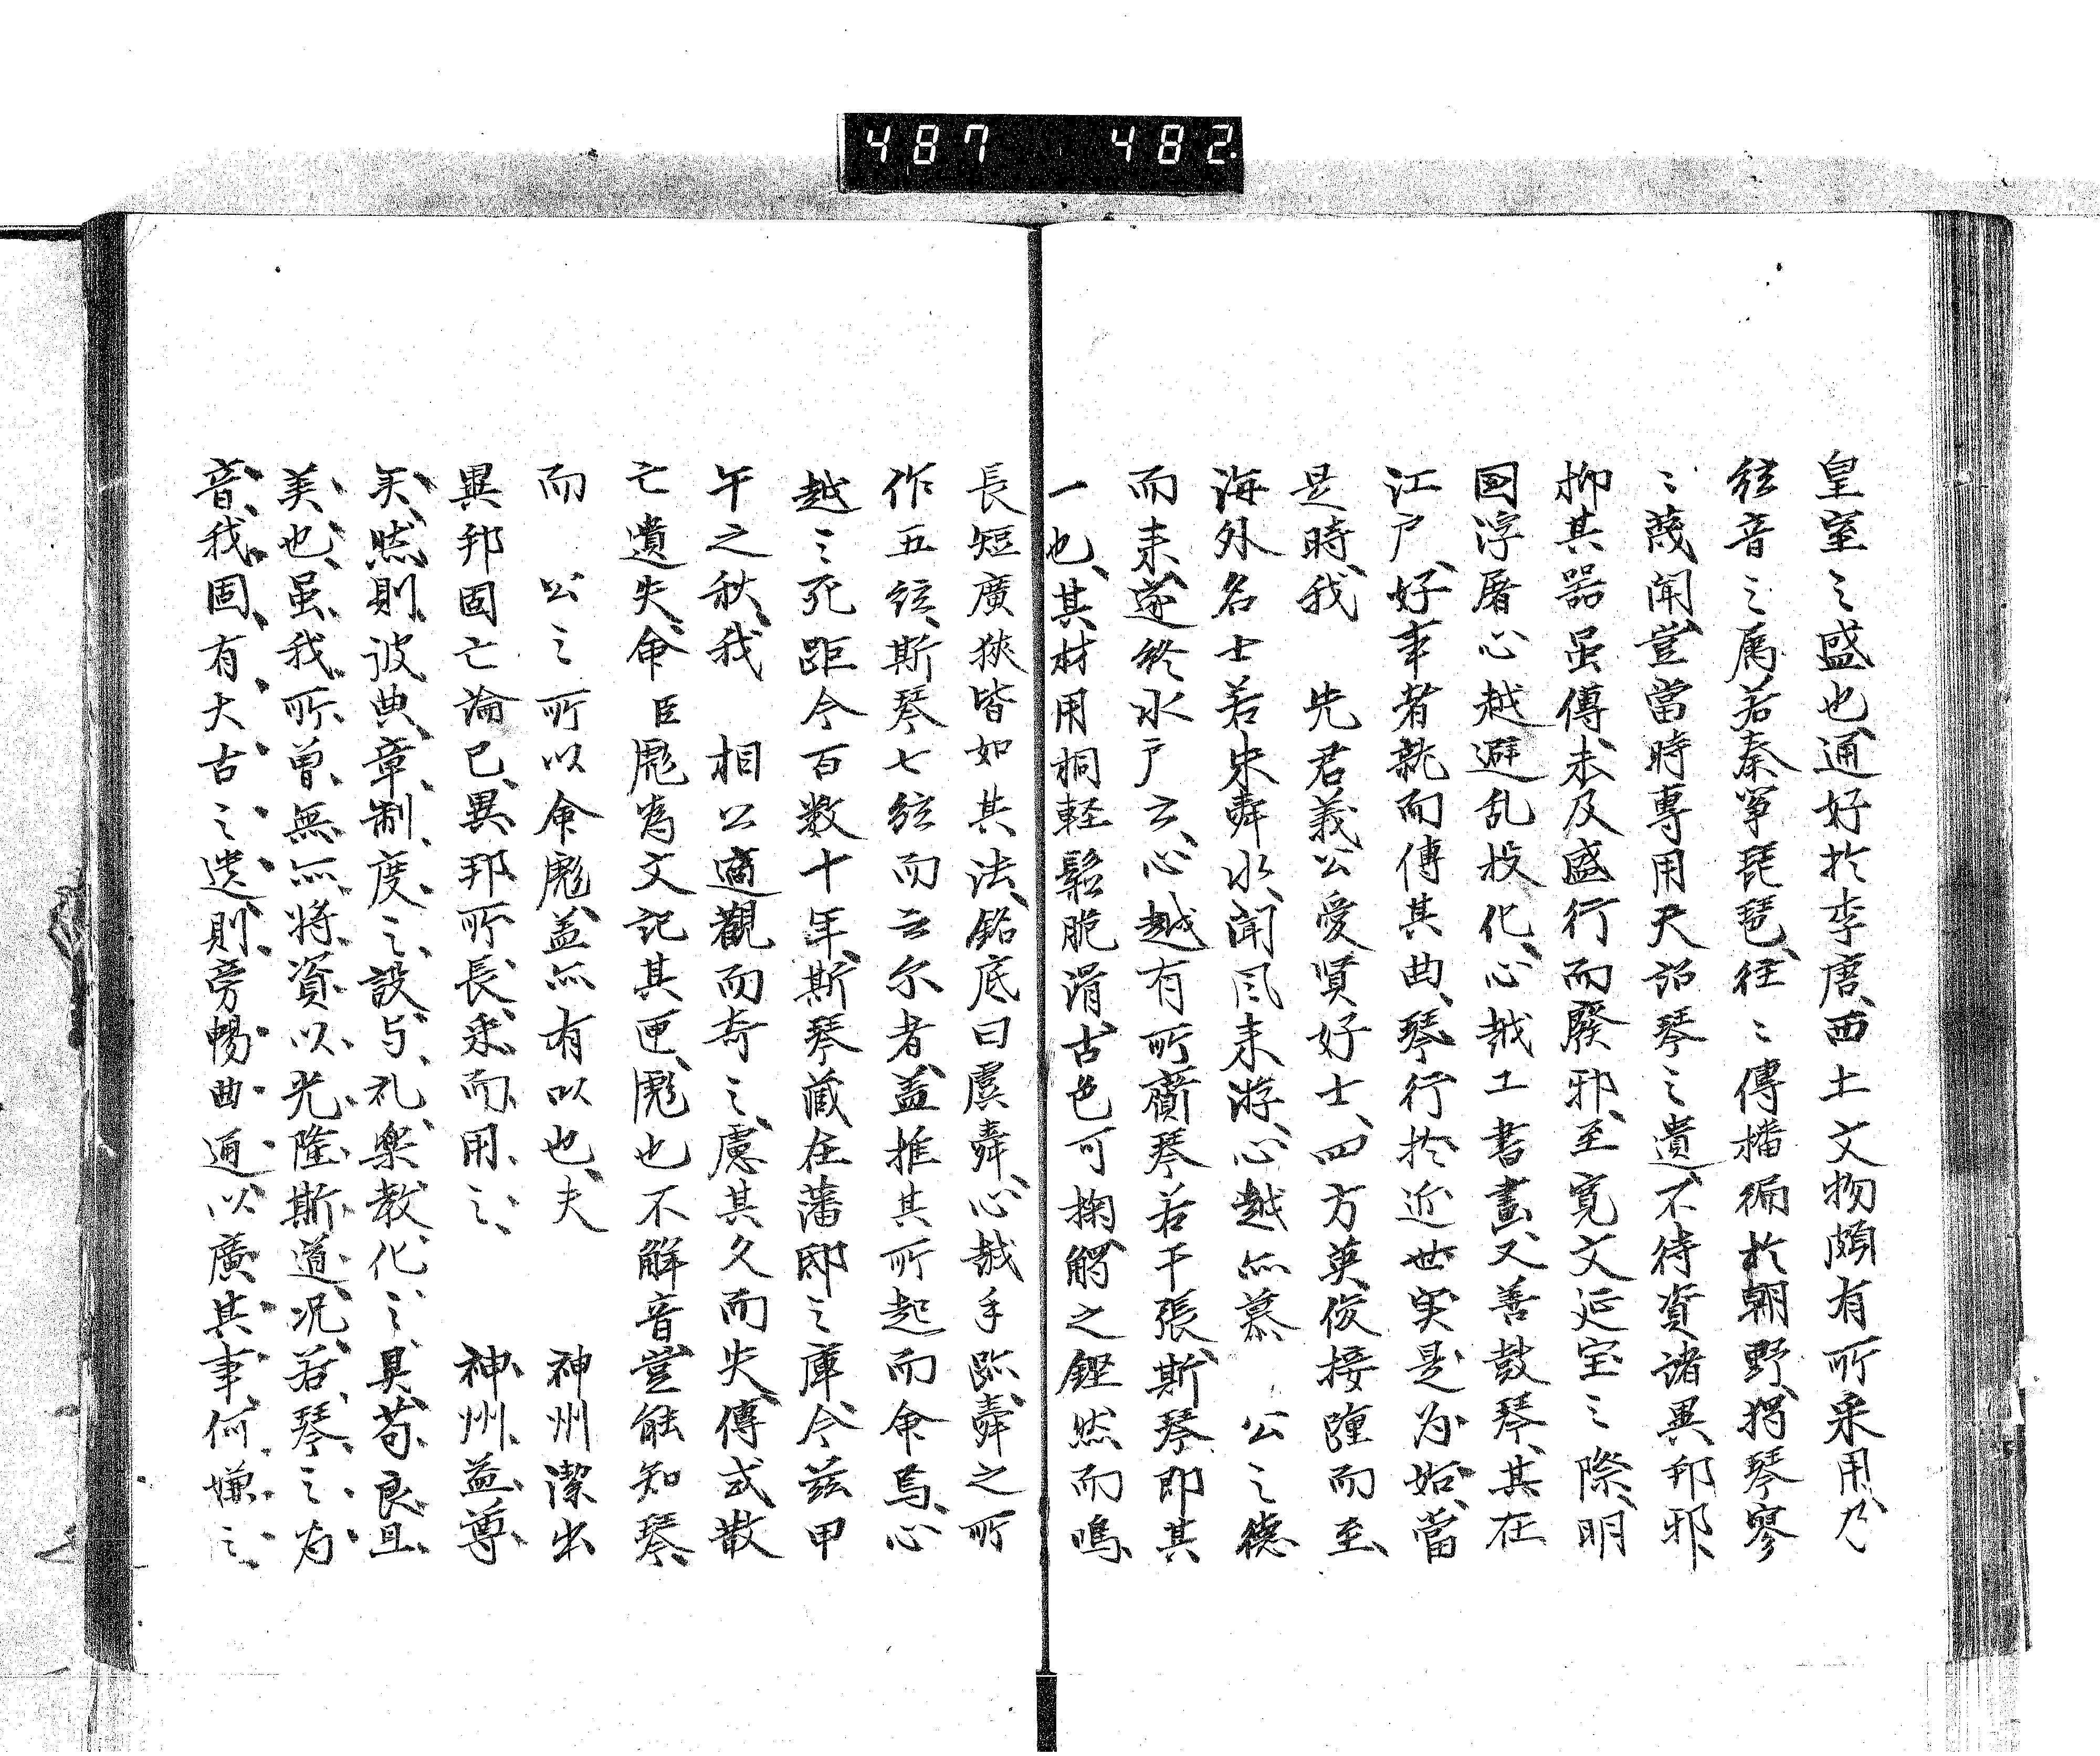 487 482
皇室之盛也、通好於李唐、西土文物頗有所采用、乃
絃音之属、若秦箏琵琶、往〻傳播徧於朝野、獨琴寥
〻蔑聞、豈當時專用天詔琴之遺、不待資諸異邦邪、
抑其器虽傳、未及盛行而廢邪、至寛文延宝之際、明
國浮屠心越避乱投化、心越工書畫、又善鼓琴、其在
江戸、好事者就而傳其曲、琴行於近世実是为始、當
是時、我　先君義公愛賢好士、四方英俊接踵而至、
海外名士若朱舜水、聞風来游、心越亦慕　公之德
而来、遂終水戸云、心越有所齎琴若干張、斯琴即其
一也、其材用桐軽鬆脆滑、古色可掬、觸之鏗然而鳴、
長短廣狹皆如其法、銘底曰虞舜、心越手跡、舜之所
作五絃、斯琴七絃而云尓者、蓋推其所起而命焉、心
越之死距今百数十年、斯琴藏在藩邸之庫、今茲甲
午之秋、我　相公適觀而奇之、慮其久而失傳或散
亡遺失、命臣彪為文記其匣、彪也不解音、豈能知琴、
而　公之所以命彪、蓋亦有以也、夫　神州潔出
異邦固亡論已、異邦所長、采而用之、　神州益尊
矣、然則彼典章制度之設与礼楽教化之具、苟良且
美也、虽我所曾無、亦将資以光隆斯道、况若琴之为
音、我固有大古之遗、則旁暢曲通、以廣其事、何嫌之